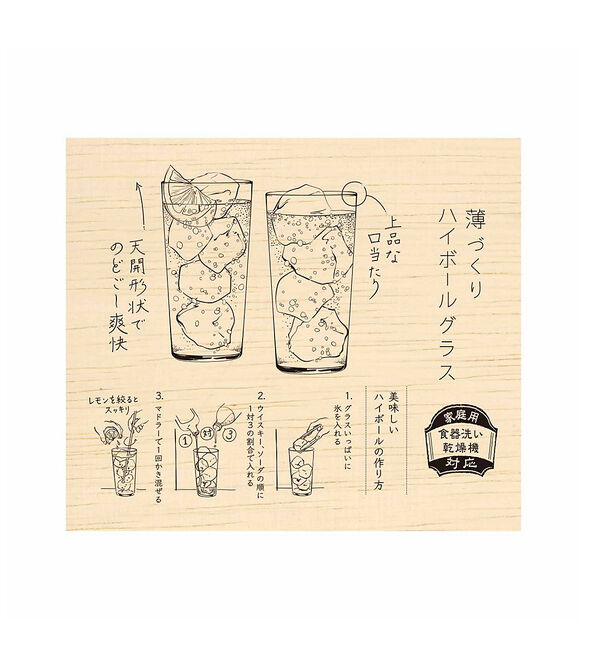 薄づくり
ハイボールグラス
上品な
口当たり
天開形状で
のどごし爽快
家庭用
食器洗い
乾燥機
対応
美味しい
ハイボールの作り方
1. グラスいっぱいに
氷を入れる
2. ウイスキー、ソーダの順に
1対3の割合で入れる
1 対 3
3. マドラーで1回かき混ぜる
レモンを絞ると
スッキリ